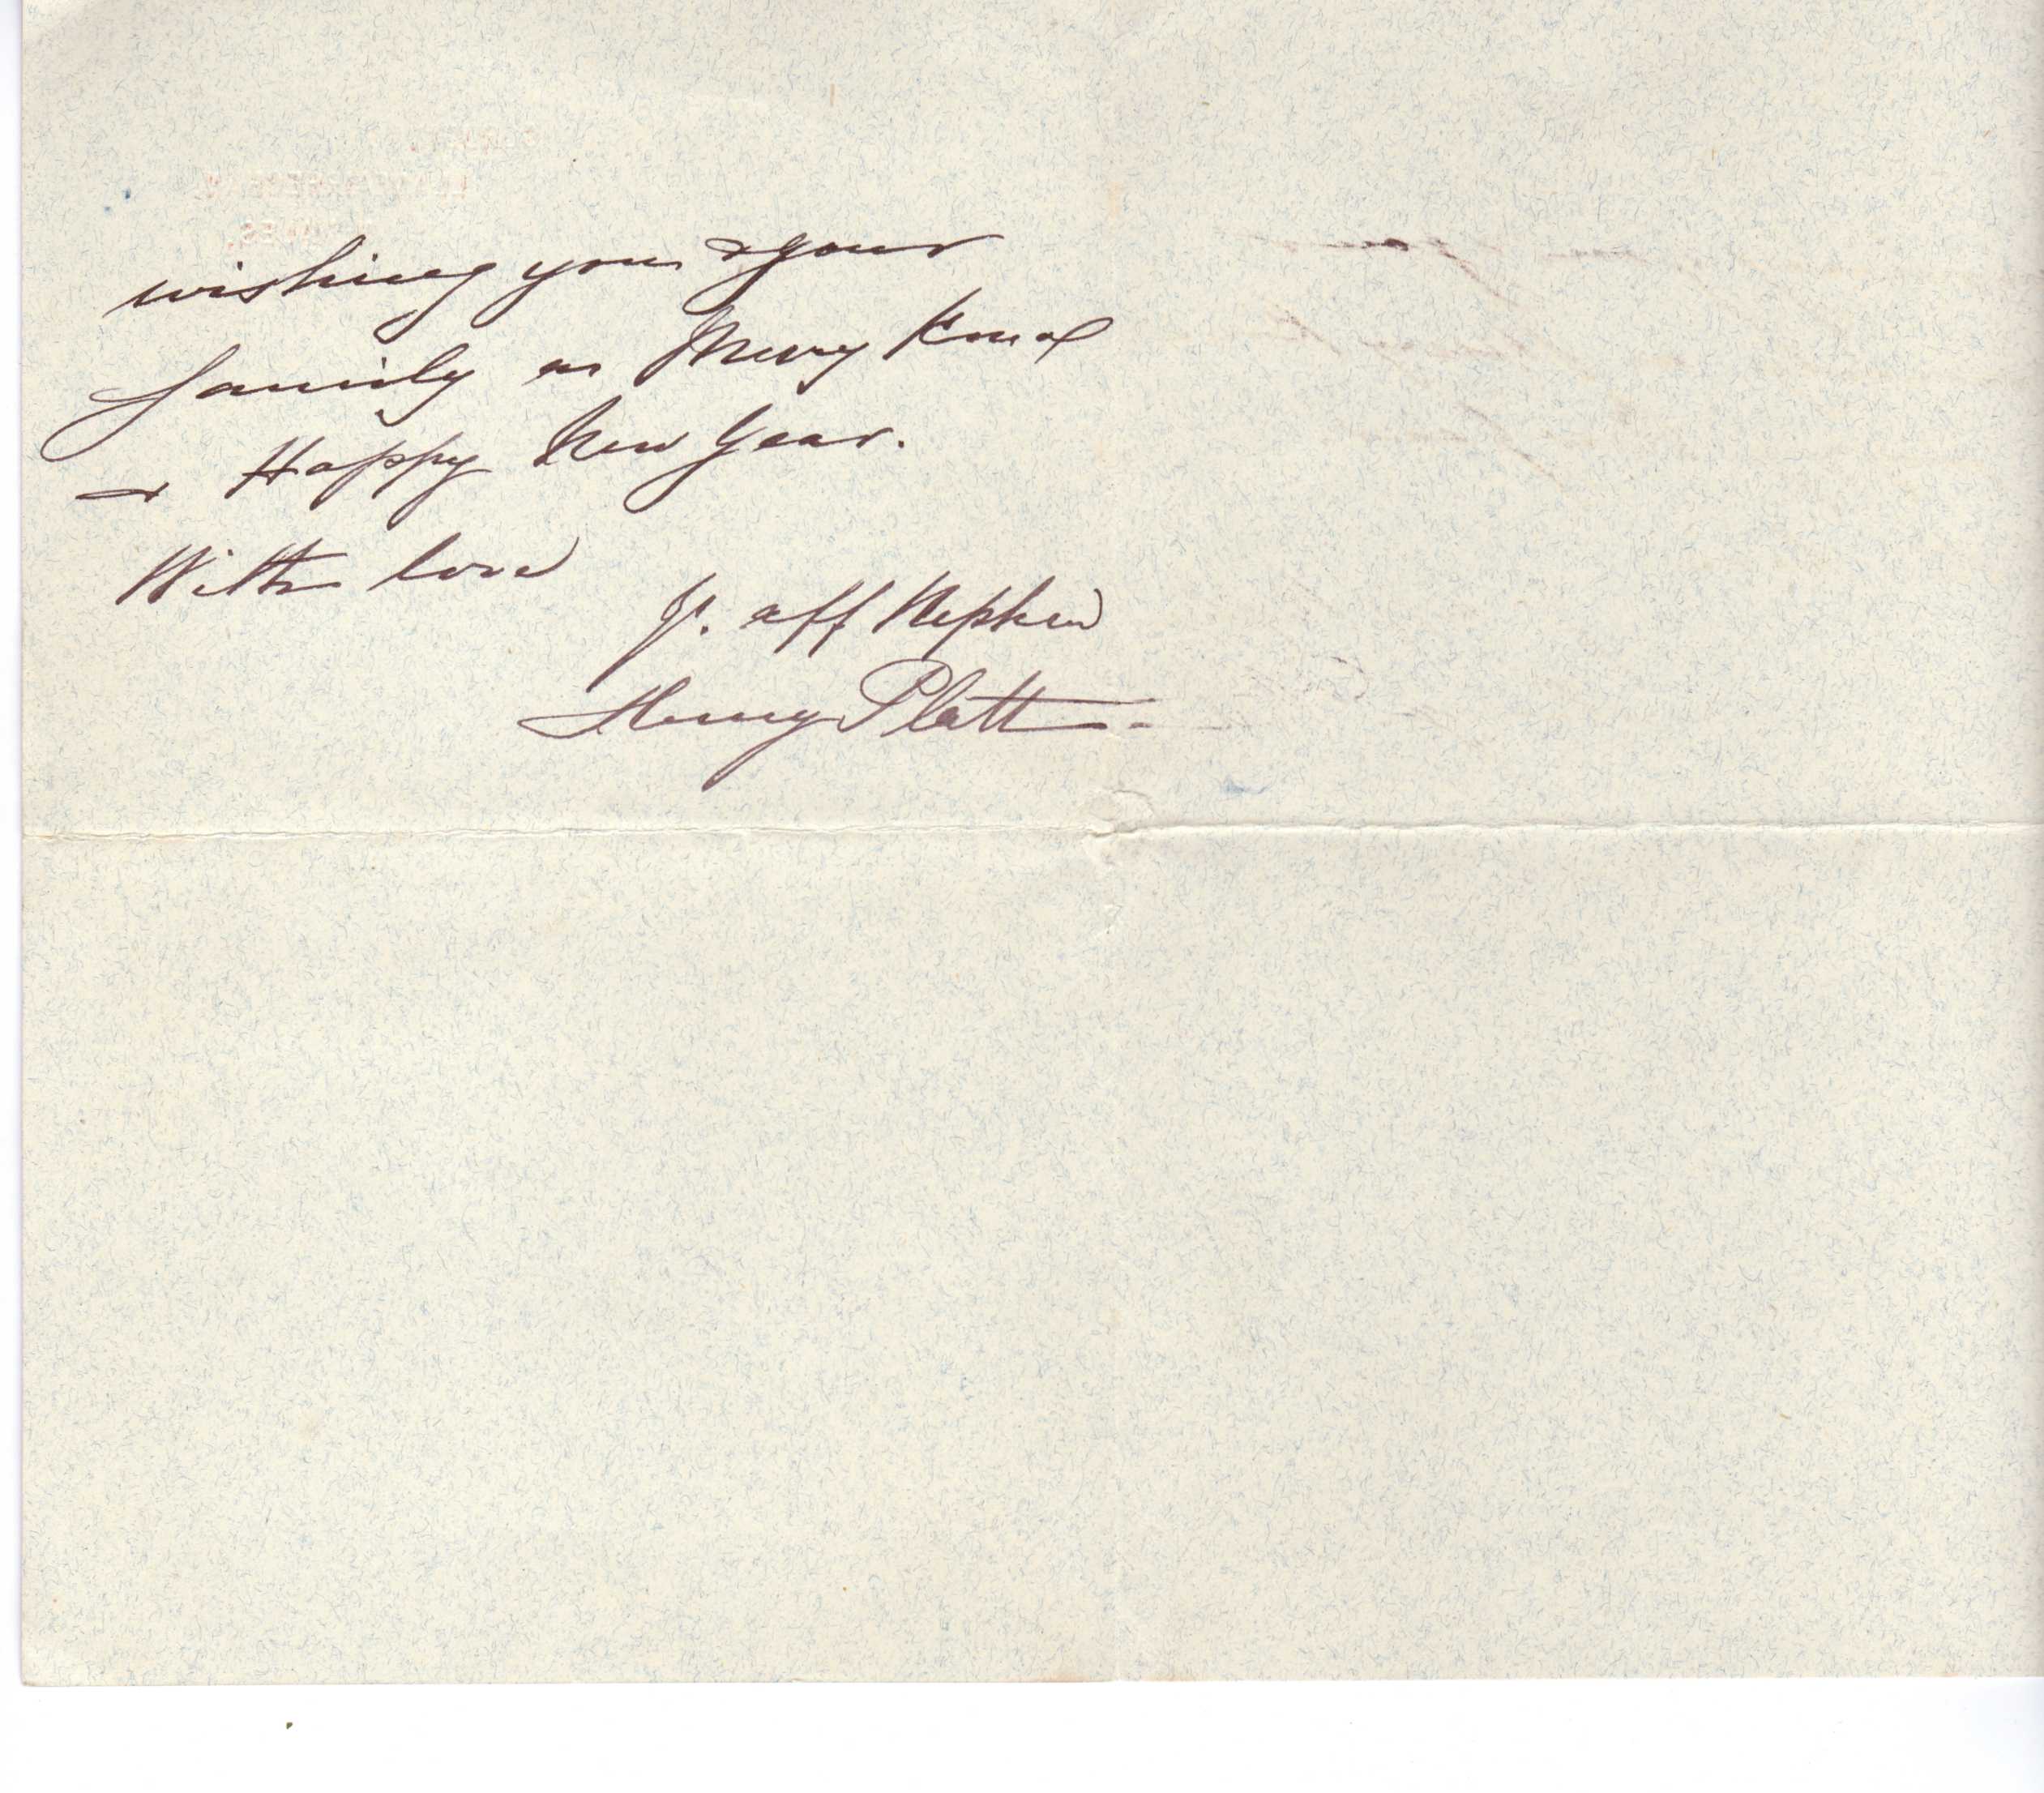 wishing you & your
family a Merry Xmas
& Happy New Year.
With love
Yr. aff Nephew
Henry Platt